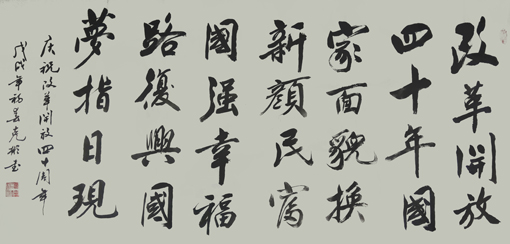 改革開放
四十年國
家面貌換
新顏民富
國强幸福
路復興國
夢指日現
庆祝改革開放四十周年
戊戌年初姜虎彬书